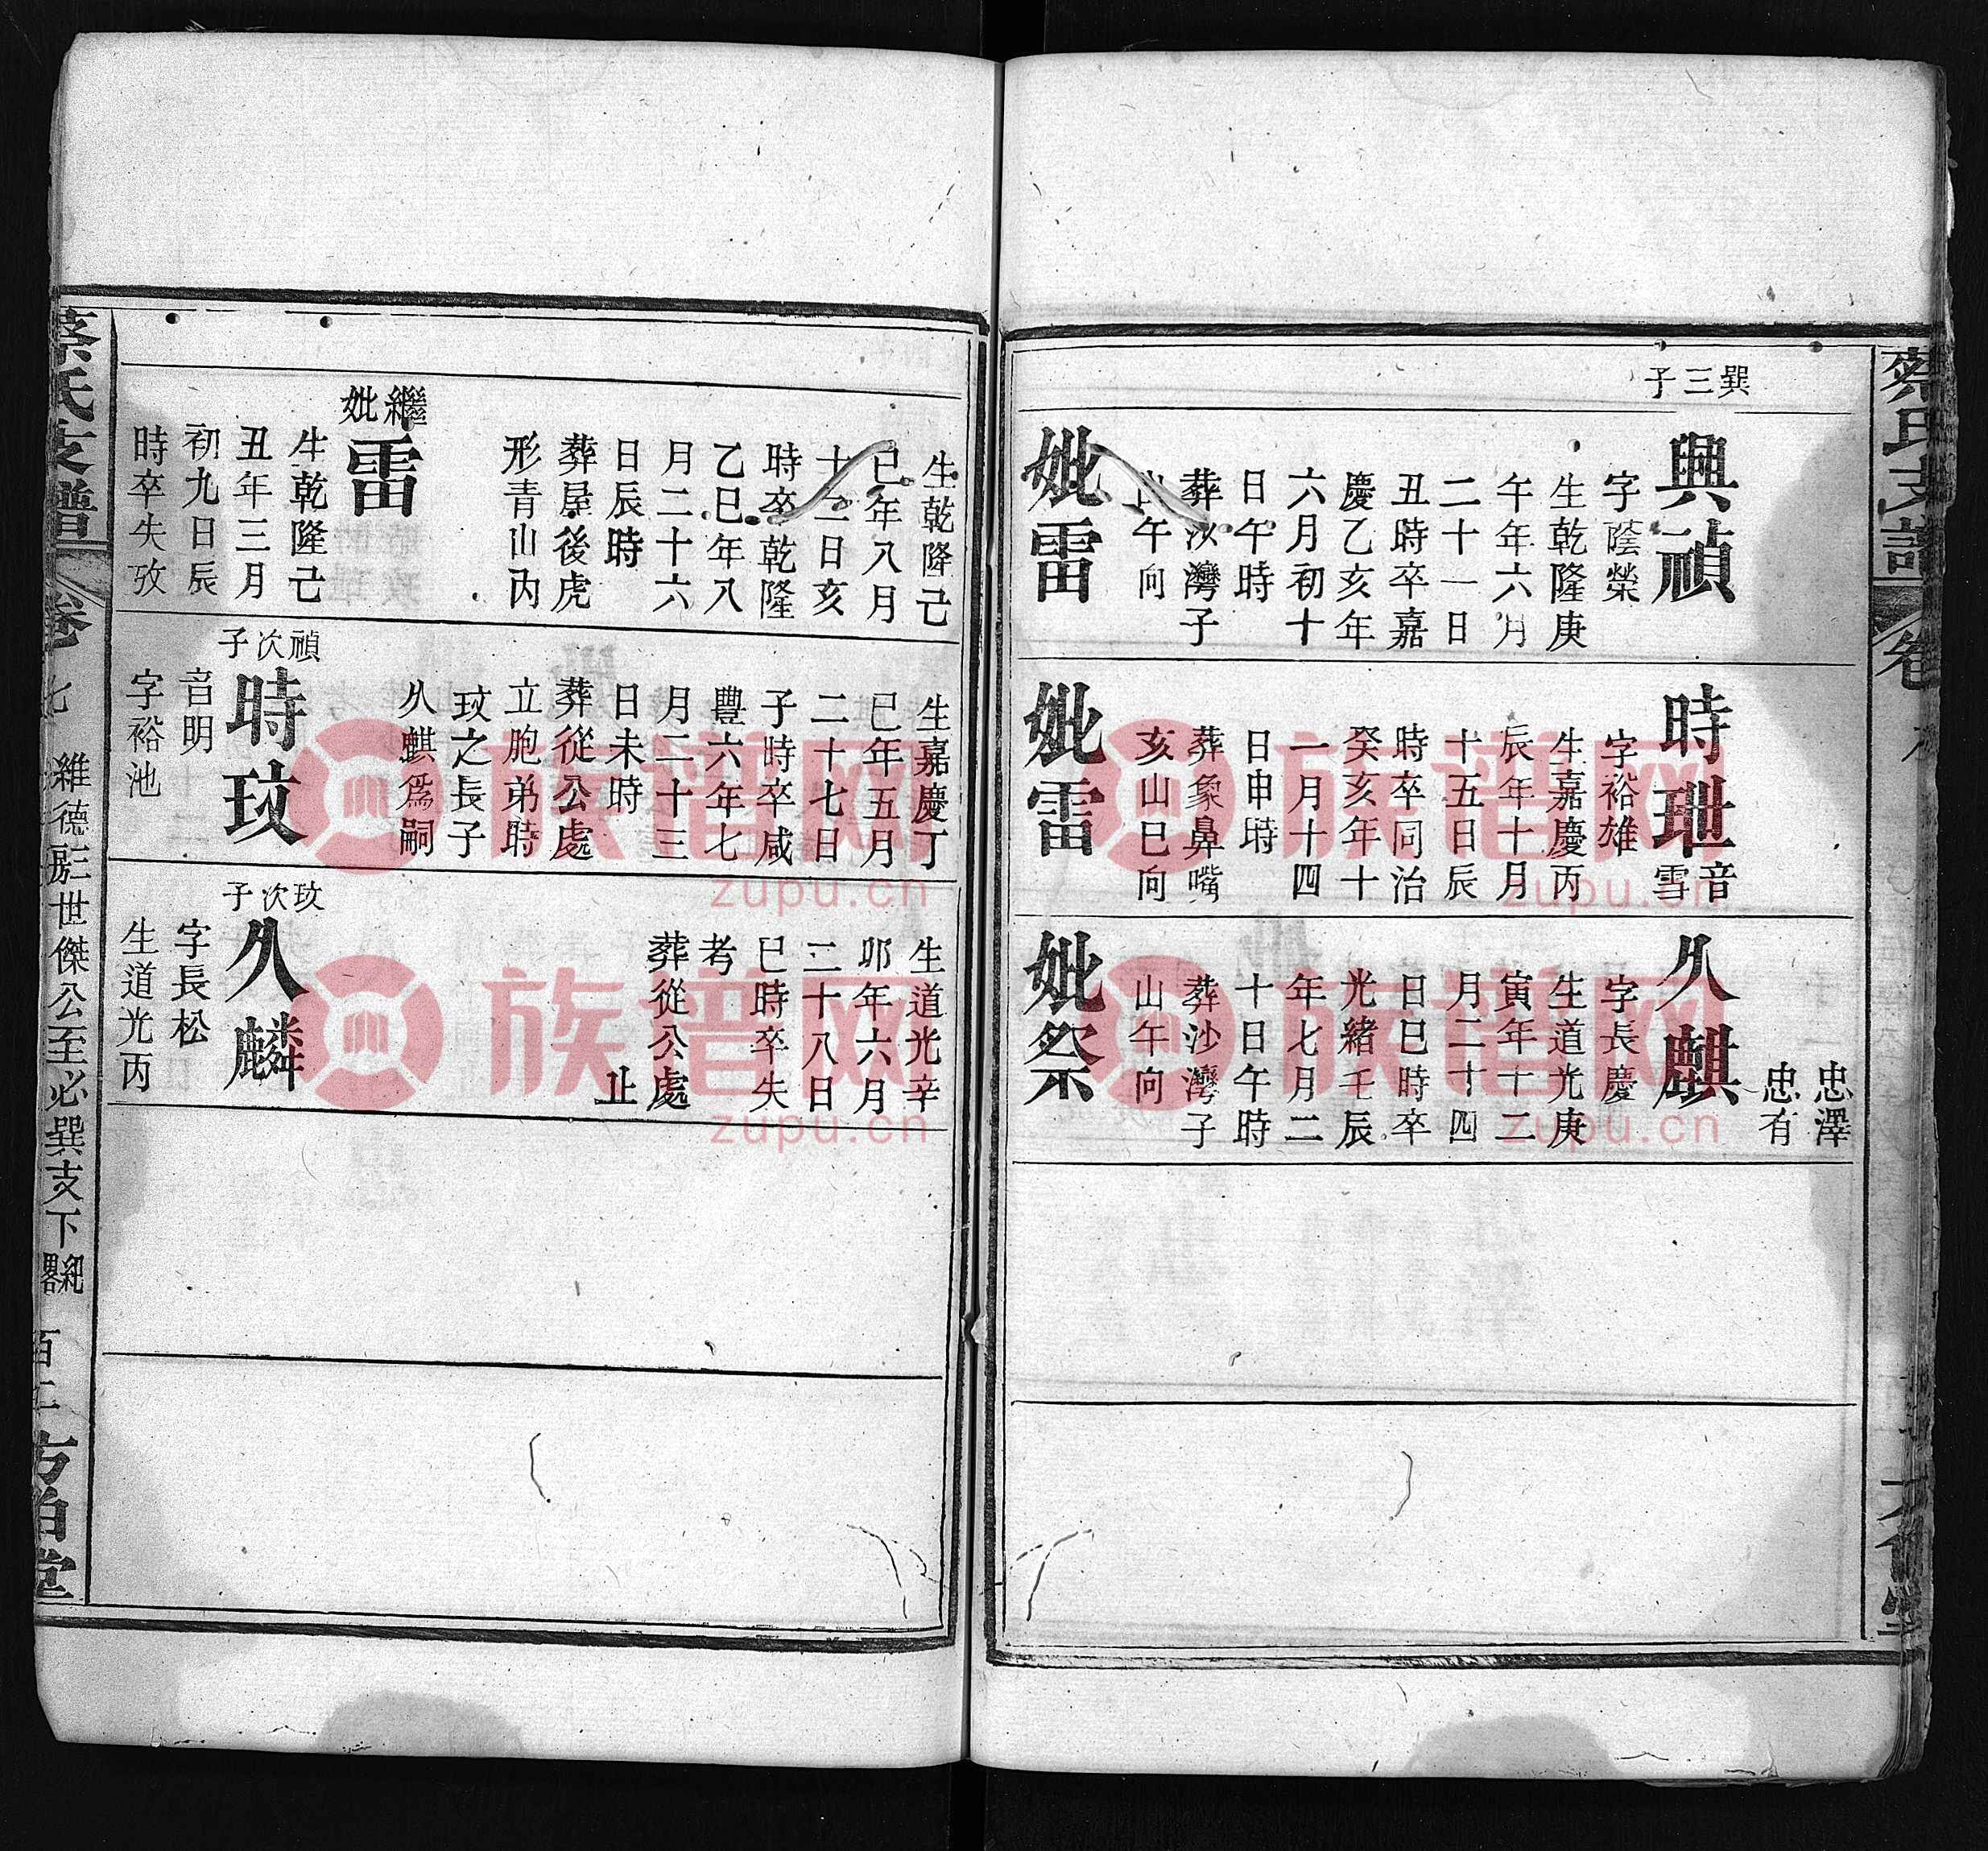 蔡氏支譜
忠澤
忠有
巽三子
興禎
字蔭榮
生乾隆庚
午年六月
二十一日
丑時卒嘉
慶乙亥年
六月初十
日午時
葬汝灣子
山午向
妣雷
時玴
音
雪
字裕雄
生嘉慶丙
辰年十月
十五日辰
時卒同治
癸亥年十
一月十四
日申時
葬象鼻嘴
亥山巳向
妣雷
久麒
字長慶
生道光庚
寅年十二
月二十四
日巳時卒
光緒壬辰
年七月二
十日午時
葬沙灣子
山午向
妣祭
生乾隆己
巳年八月
十二日亥
時卒乾隆
乙巳年八
月二十六
日辰時
葬屋後虎
形青山丙
繼妣
雷
生乾隆己
丑年三月
初九日辰
時卒失攷
生嘉慶丁
巳年五月
二十七日
子時卒咸
豐六年七
月二十三
日未時
葬從公處
立胞弟時
玟之長子
久麒爲嗣
禎次子
時玟
音明
字裕池
生道光辛
卯年六月
二十八日
巳時卒失
考
葬從公處
止
玟次子
久麟
字長松
生道光丙
蔡氏支譜
卷七
維德房三世傑公至必巽支下紀畧
百二
族谱网
zupu.cn
族谱网
zupu.cn
族谱网
zupu.cn
族谱网
zupu.cn